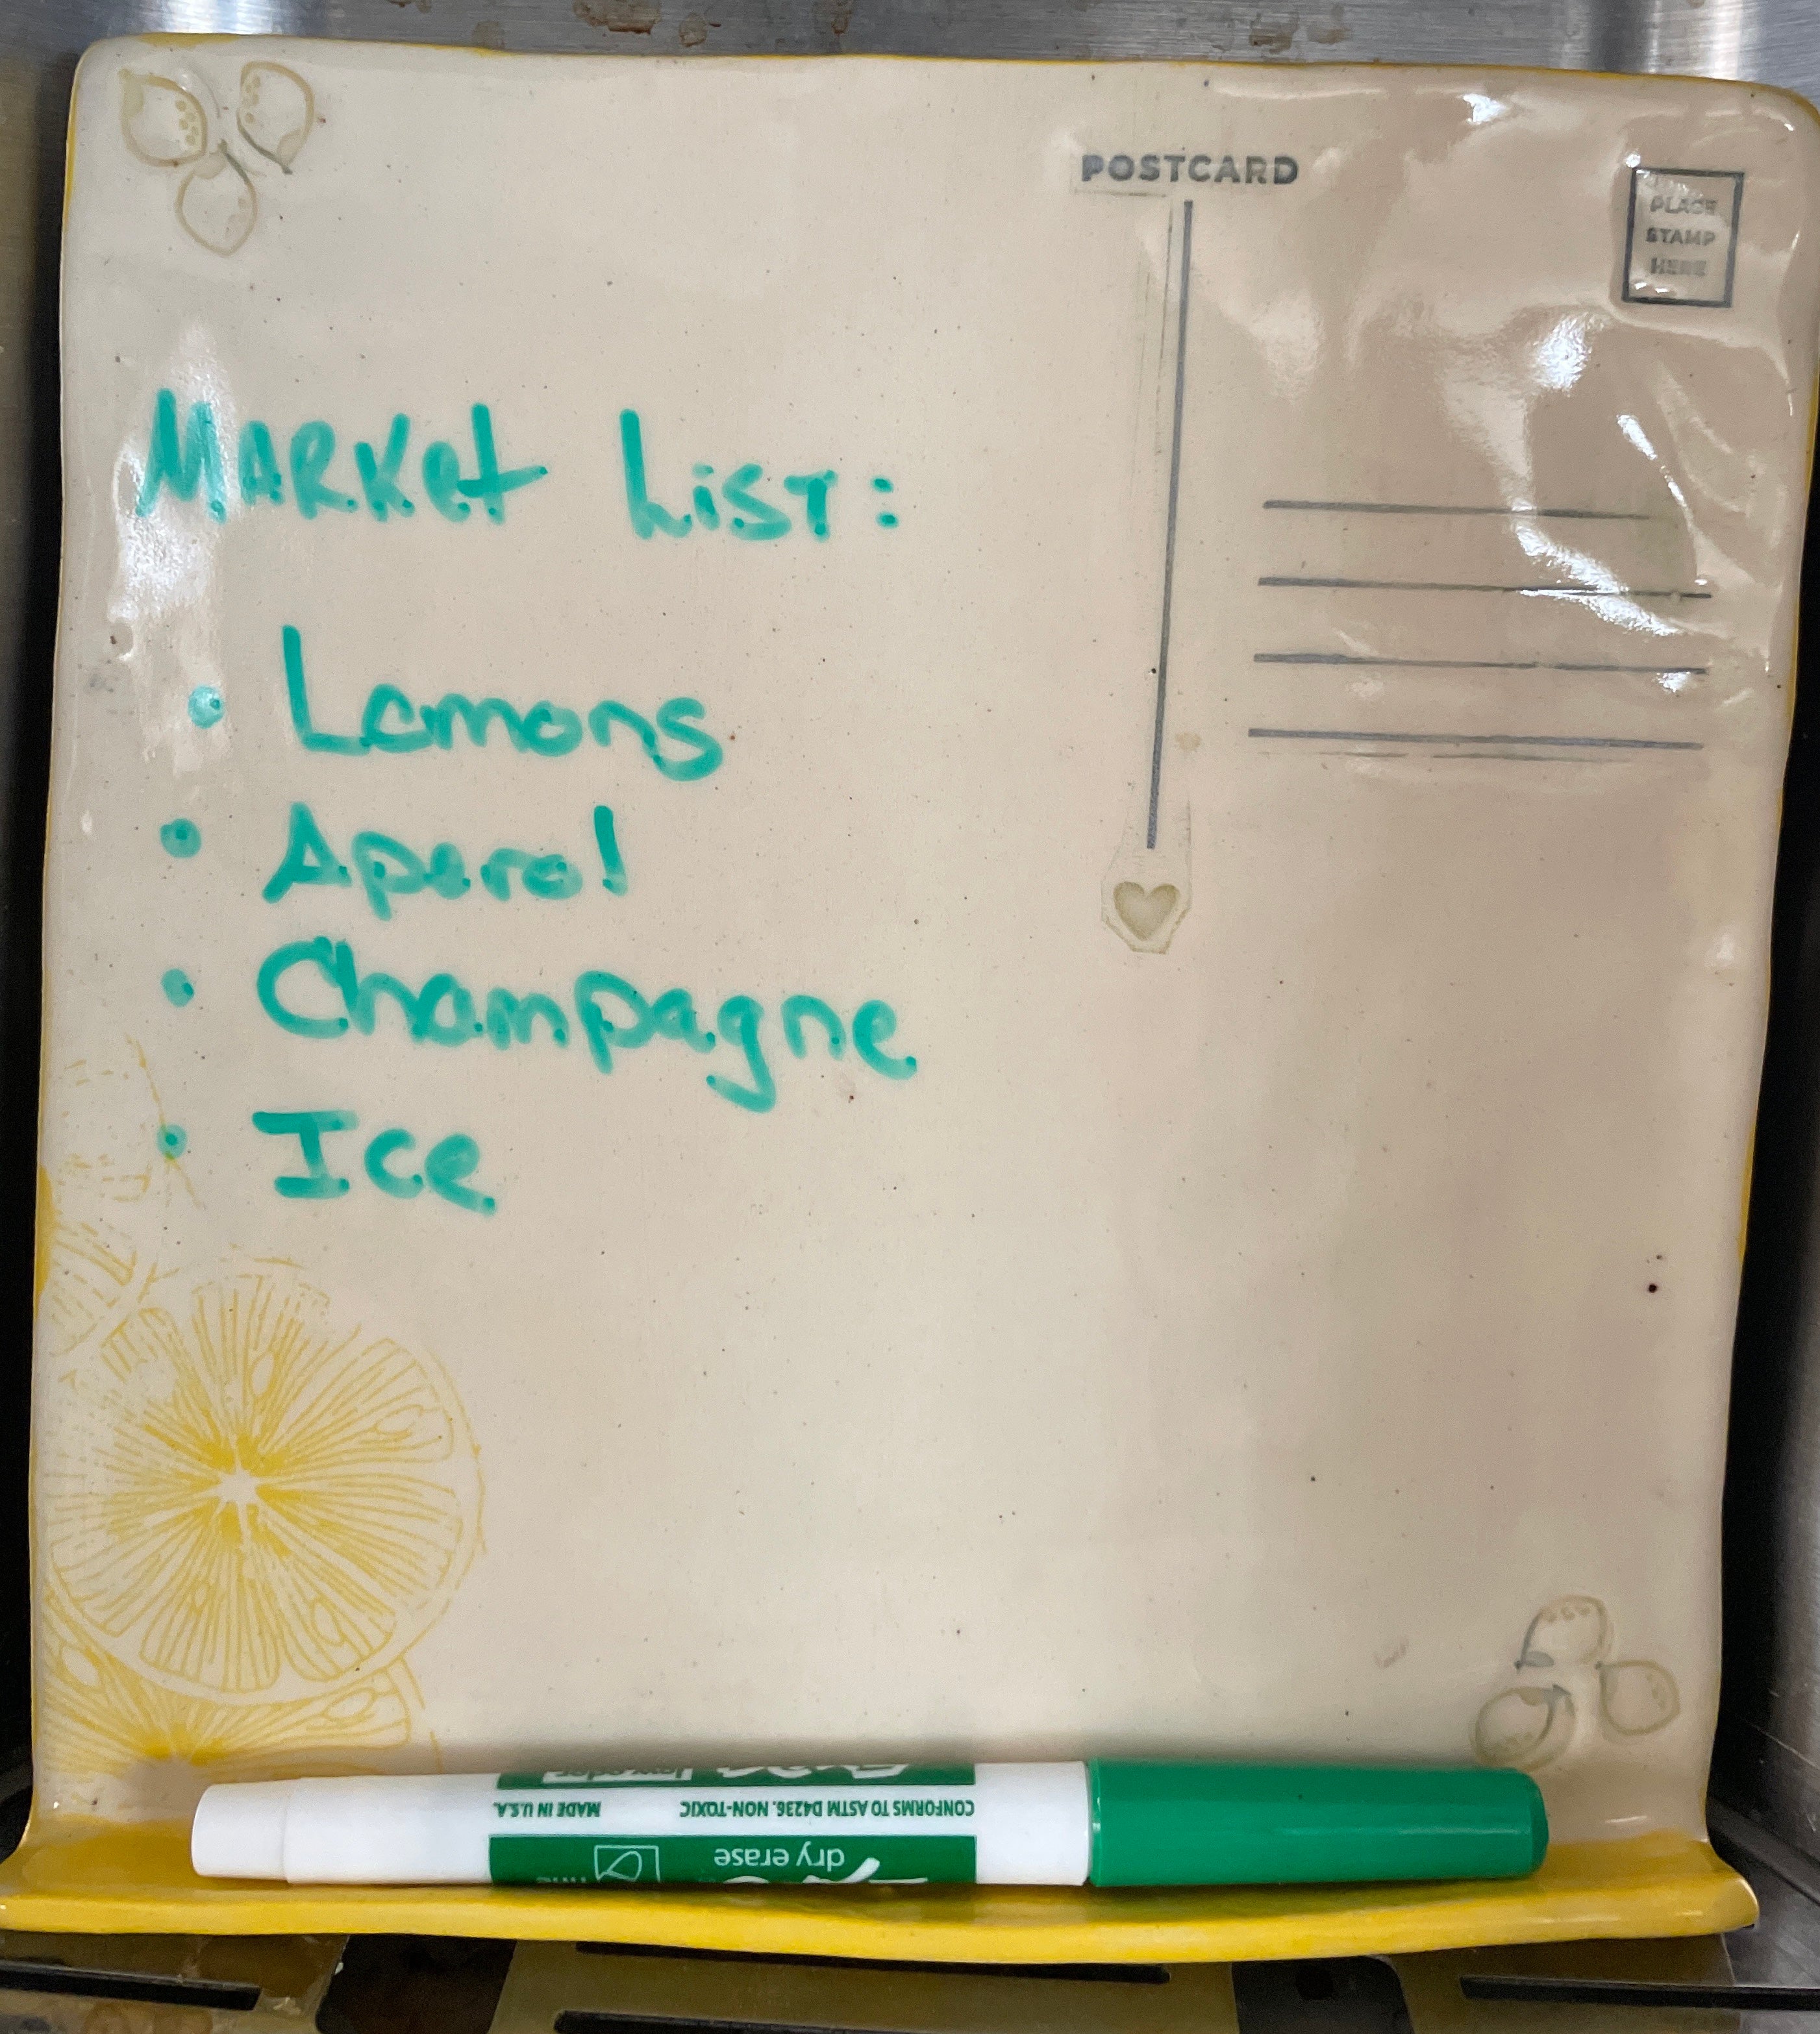 POSTCARD
PLACE
STAMP
HERE
MARKet LiST:
• Lemons
• Aperol
• Champagne
• Ice
low odor
MADE IN U.S.A.
CONFORMS TO ASTM D4236. NON-TOXIC
dry erase